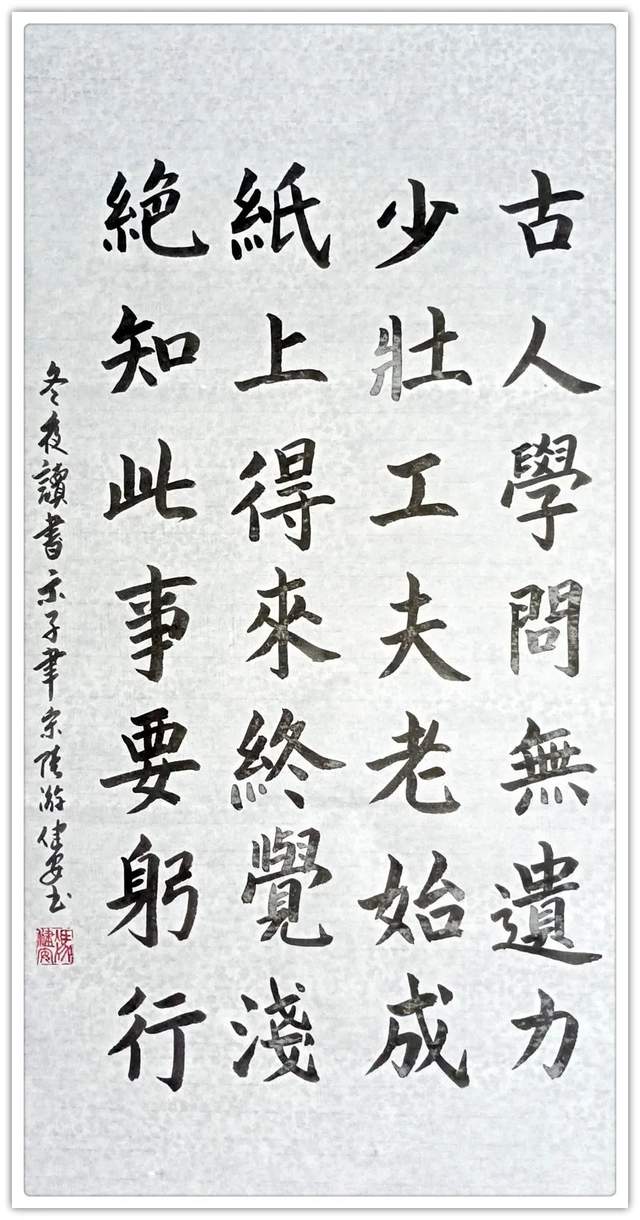 古人學問無遺力
少壯工夫老始成
紙上得來終覺淺
絶知此事要躬行
冬夜讀書示子聿宗陸游健安书